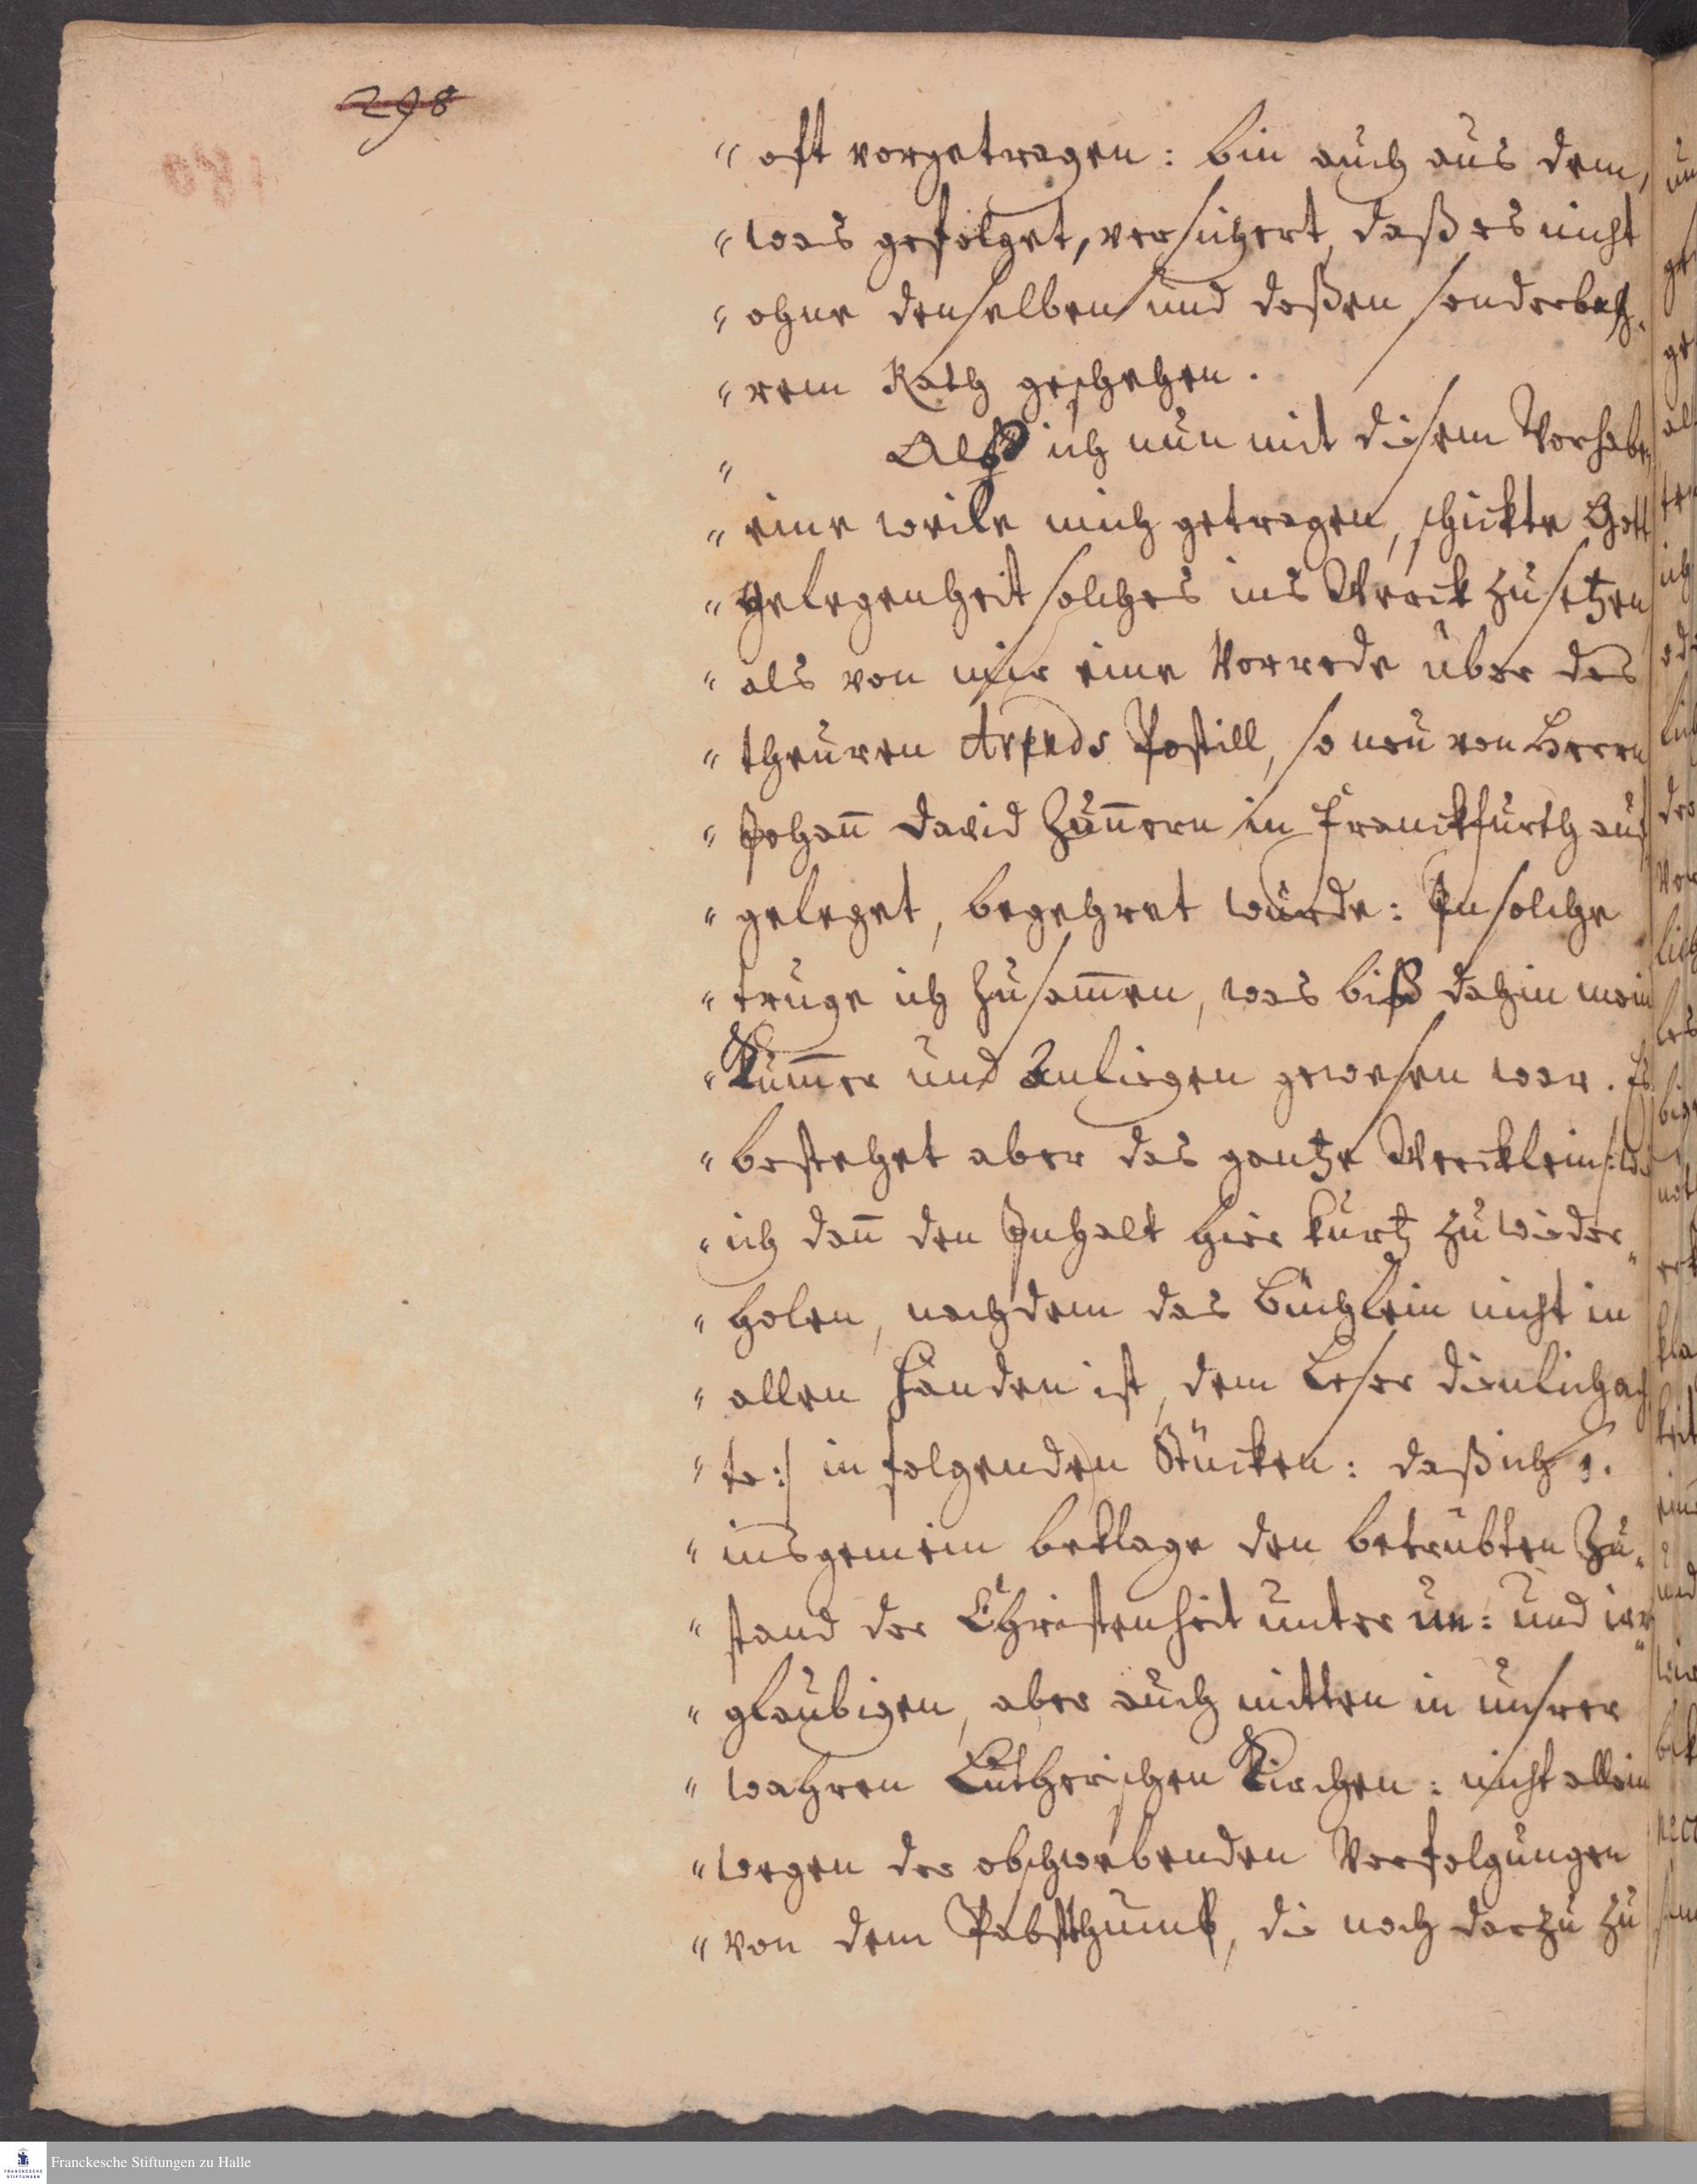 298
" oft vorgetragen: bin auch aus dem,
" was gefolget, versichert, daß es nicht
" ohne denselben und deßen sonderbah-
" rem Rath geschehen.
" Alß ich nun mit diesem Vorhaben
" eine weile mich getragen, schickte Gott
" gelegenheit solches ins Werck zu setzen
" als von mir eine Vorrede über des
" theuren Arnds Postill, so neu von Herrn
" Johan̄ David Zun̄ern in Franckfurth auß
" geleget, begehret wurde: In solche
" truge ich zusam̄en, was biß dahin mein
" Kum̄er und Anliegen gewesen war. Es
" bestehet aber das gantze Wercklein :/wie
" ich dan̄ den Inhalt hier kurtz zu wieder"
" holen, nachdem das Büchlein nicht in
" allen Händen ist, dem Leser dienlich ach
" te:/ in folgenden Stücken: daß ich 1.
" insgemein beklage den betrübten Zu"
" stand der Christenheit unter un: und irr"
" glaubigen, aber auch mitten in unsrer
" wahren Lutherischen Kirchen: nicht allein
" wegen der obschwebenden Verfolgungen
" von dem Pabsthumb, die noch darzu zu
Franckesche Stiftungen zu Halle